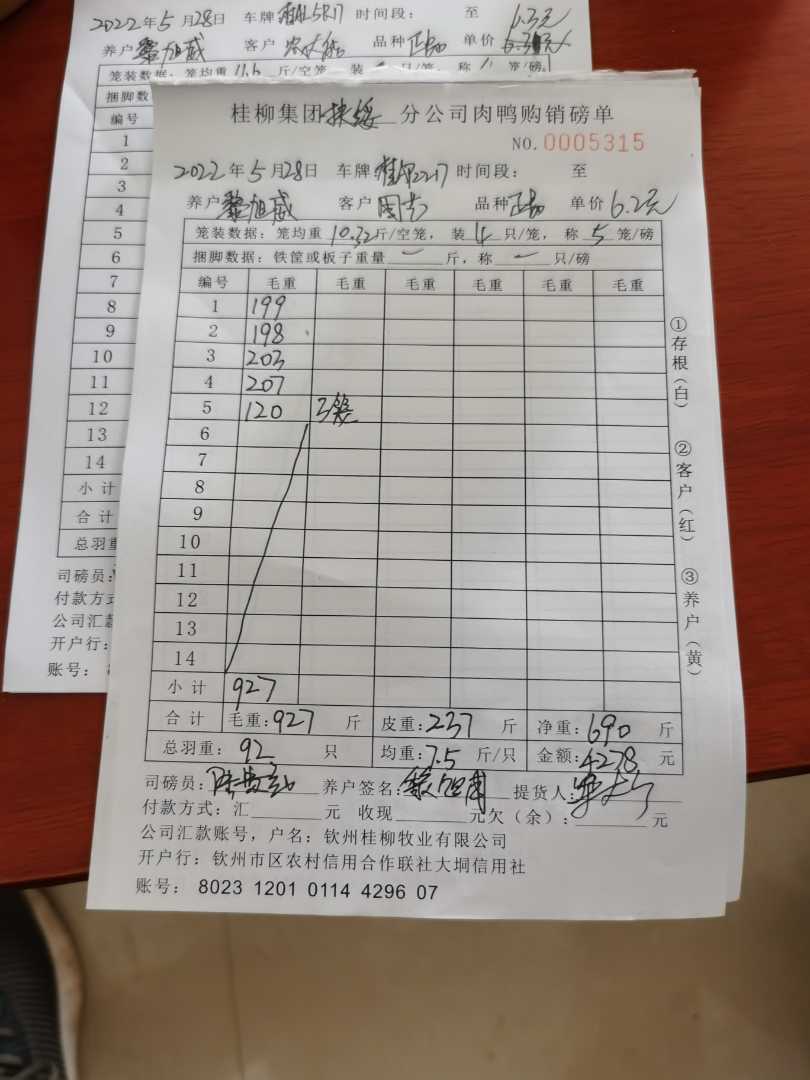 2022年5月28日 车牌 时间段: 至 6.3元
养户 黎旭威 客户 品种 正加 单价
笼装数据: 笼均重 11.6 斤/空笼, 装 只/笼, 称 笼/磅
捆脚数
编号
1
2
3
4
5
6
7
8
9
10
11
12
13
14
小计
合计
总羽重
司磅员:
付款方式
公司汇款
开户行:
账号:
桂柳集团扶绥分公司肉鸭购销磅单
NO.0005315
2022年5月28日 车牌 时间段: 至
养户 黎旭威 客户 周吉 品种 正加 单价 6.2元
笼装数据: 笼均重 10.32斤/空笼, 装 4 只/笼, 称 5 笼/磅
捆脚数据: 铁筐或板子重量 一 斤, 称 一 只/磅
编号 毛重 毛重 毛重 毛重 毛重 毛重
1 199
2 198
3 203
4 207
5 120 3笼
6
7
8
9
10
11
12
13
14
小计 927
合计 毛重:927 斤 皮重:237 斤 净重:690 斤
总羽重: 92 只 均重:7.5 斤/只 金额:4278 元
司磅员: 养户签名: 提货人:
付款方式: 汇 元 收现 元欠(余): 元
公司汇款账号, 户名: 钦州桂柳牧业有限公司
开户行: 钦州市区农村信用合作联社大垌信用社
账号: 8023 1201 0114 4296 07
①存根(白) ②客户(红) ③养户(黄)